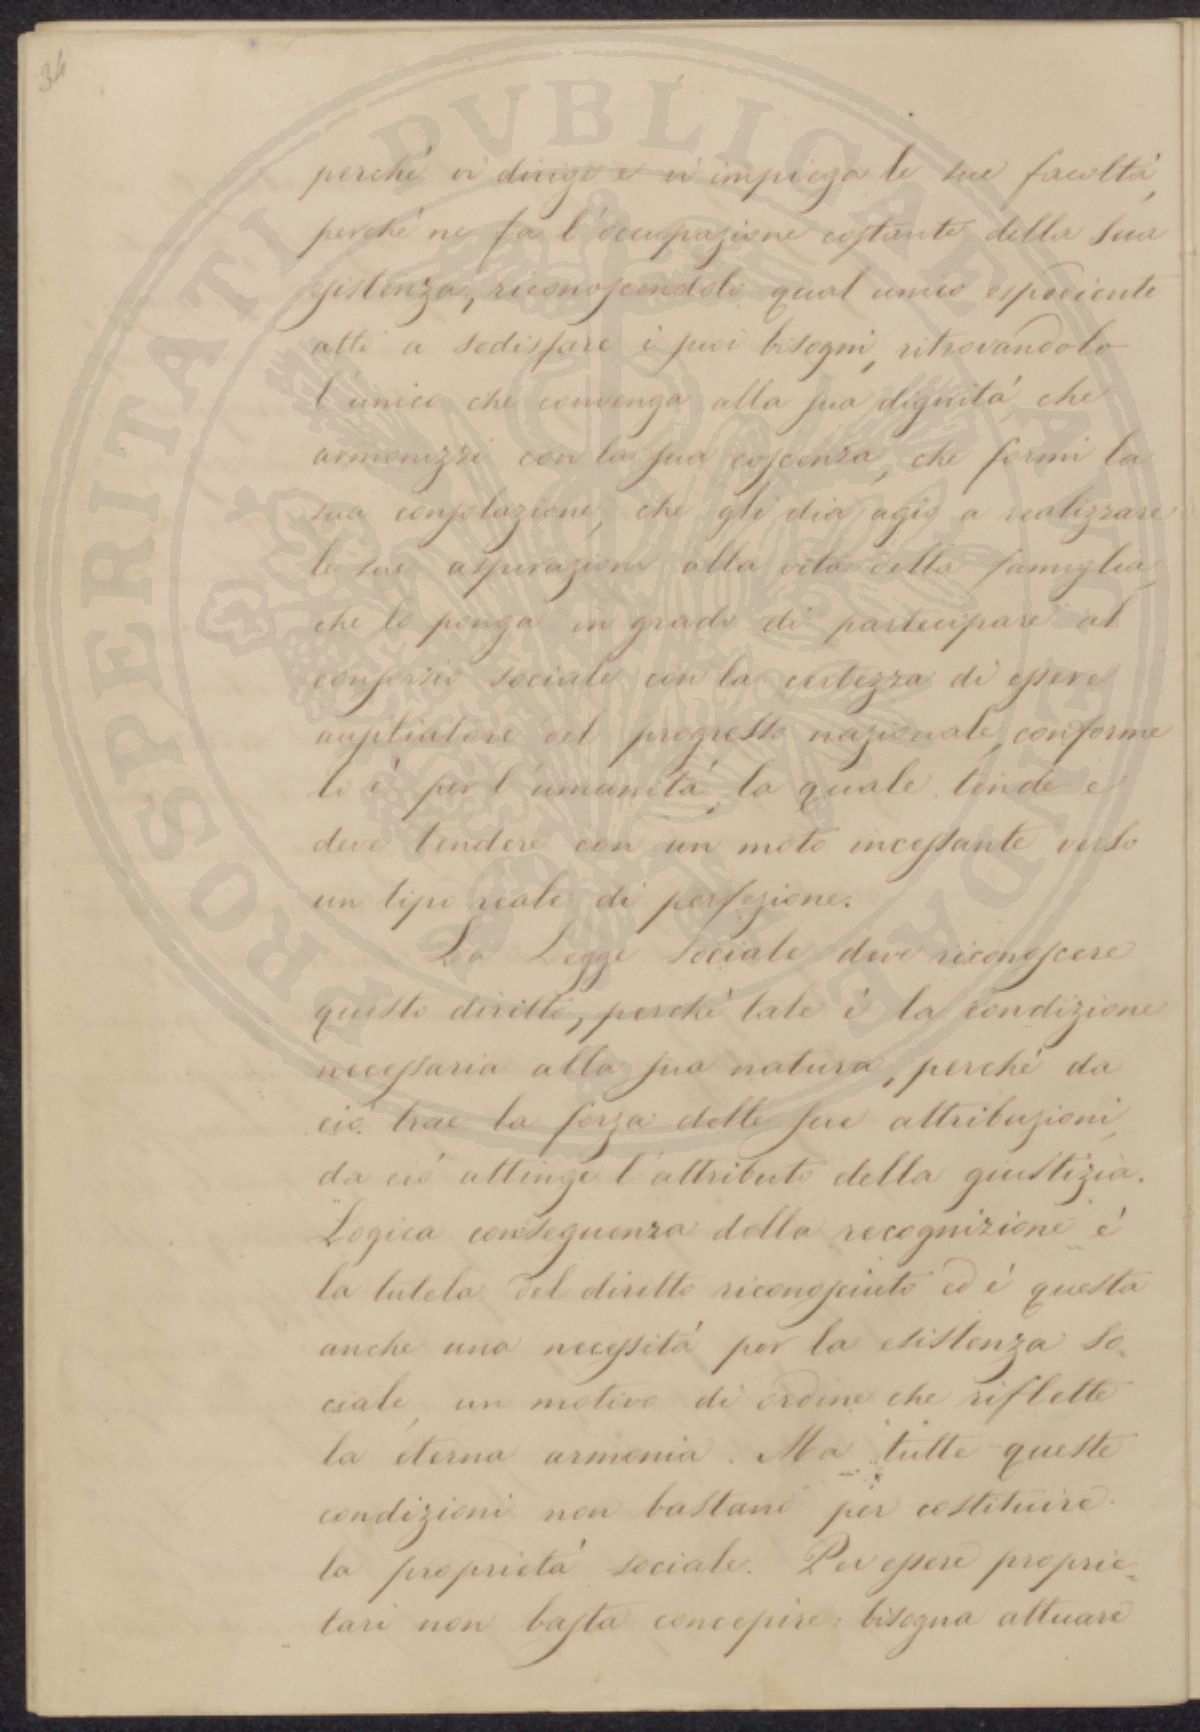 34
PROSPERITATI PVBLICAE AVGENDAE
perché vi dirige e vi impiega le sue facoltá,
perché ne fa l'occupazione costante della sua
esistenza, riconoscendolo qual unico espediente
atto a sodisfare i suoi bisogni, ritrovandolo
l'unico che convenga alla sua dignitá che
armonizzi con la sua coscenza, che formi la
sua consolazione, che gli dia agio a realizzare
le sue aspirazioni alla vita della famiglia,
che lo ponga in grado di partecipare al
consorzio sociale con la certezza di essere
ausiliatore del progresso nazionale, conforme
lo é per l'umanitá, la quale tende e
deve tendere con un moto incessante verso
un tipo reale di perfezione.
La Legge Sociale deve riconoscere
questo diritto, perché tale é la condizione
necessaria alla sua natura, perché da
ció trae la forza delle sue attribuzioni,
da ció attinge l'attributo della giustizia.
"Logica conseguenza della recognizione" é
la tutela del diritto riconosciuto ed é questa
anche una necessitá per la esistenza so=
ciale, un motivo di ordine che riflette
la eterna armonia. Ma tutte queste
condizioni non bastano per costituire
la proprietá sociale. Per essere proprie=
tari non basta concepire: bisogna attuare